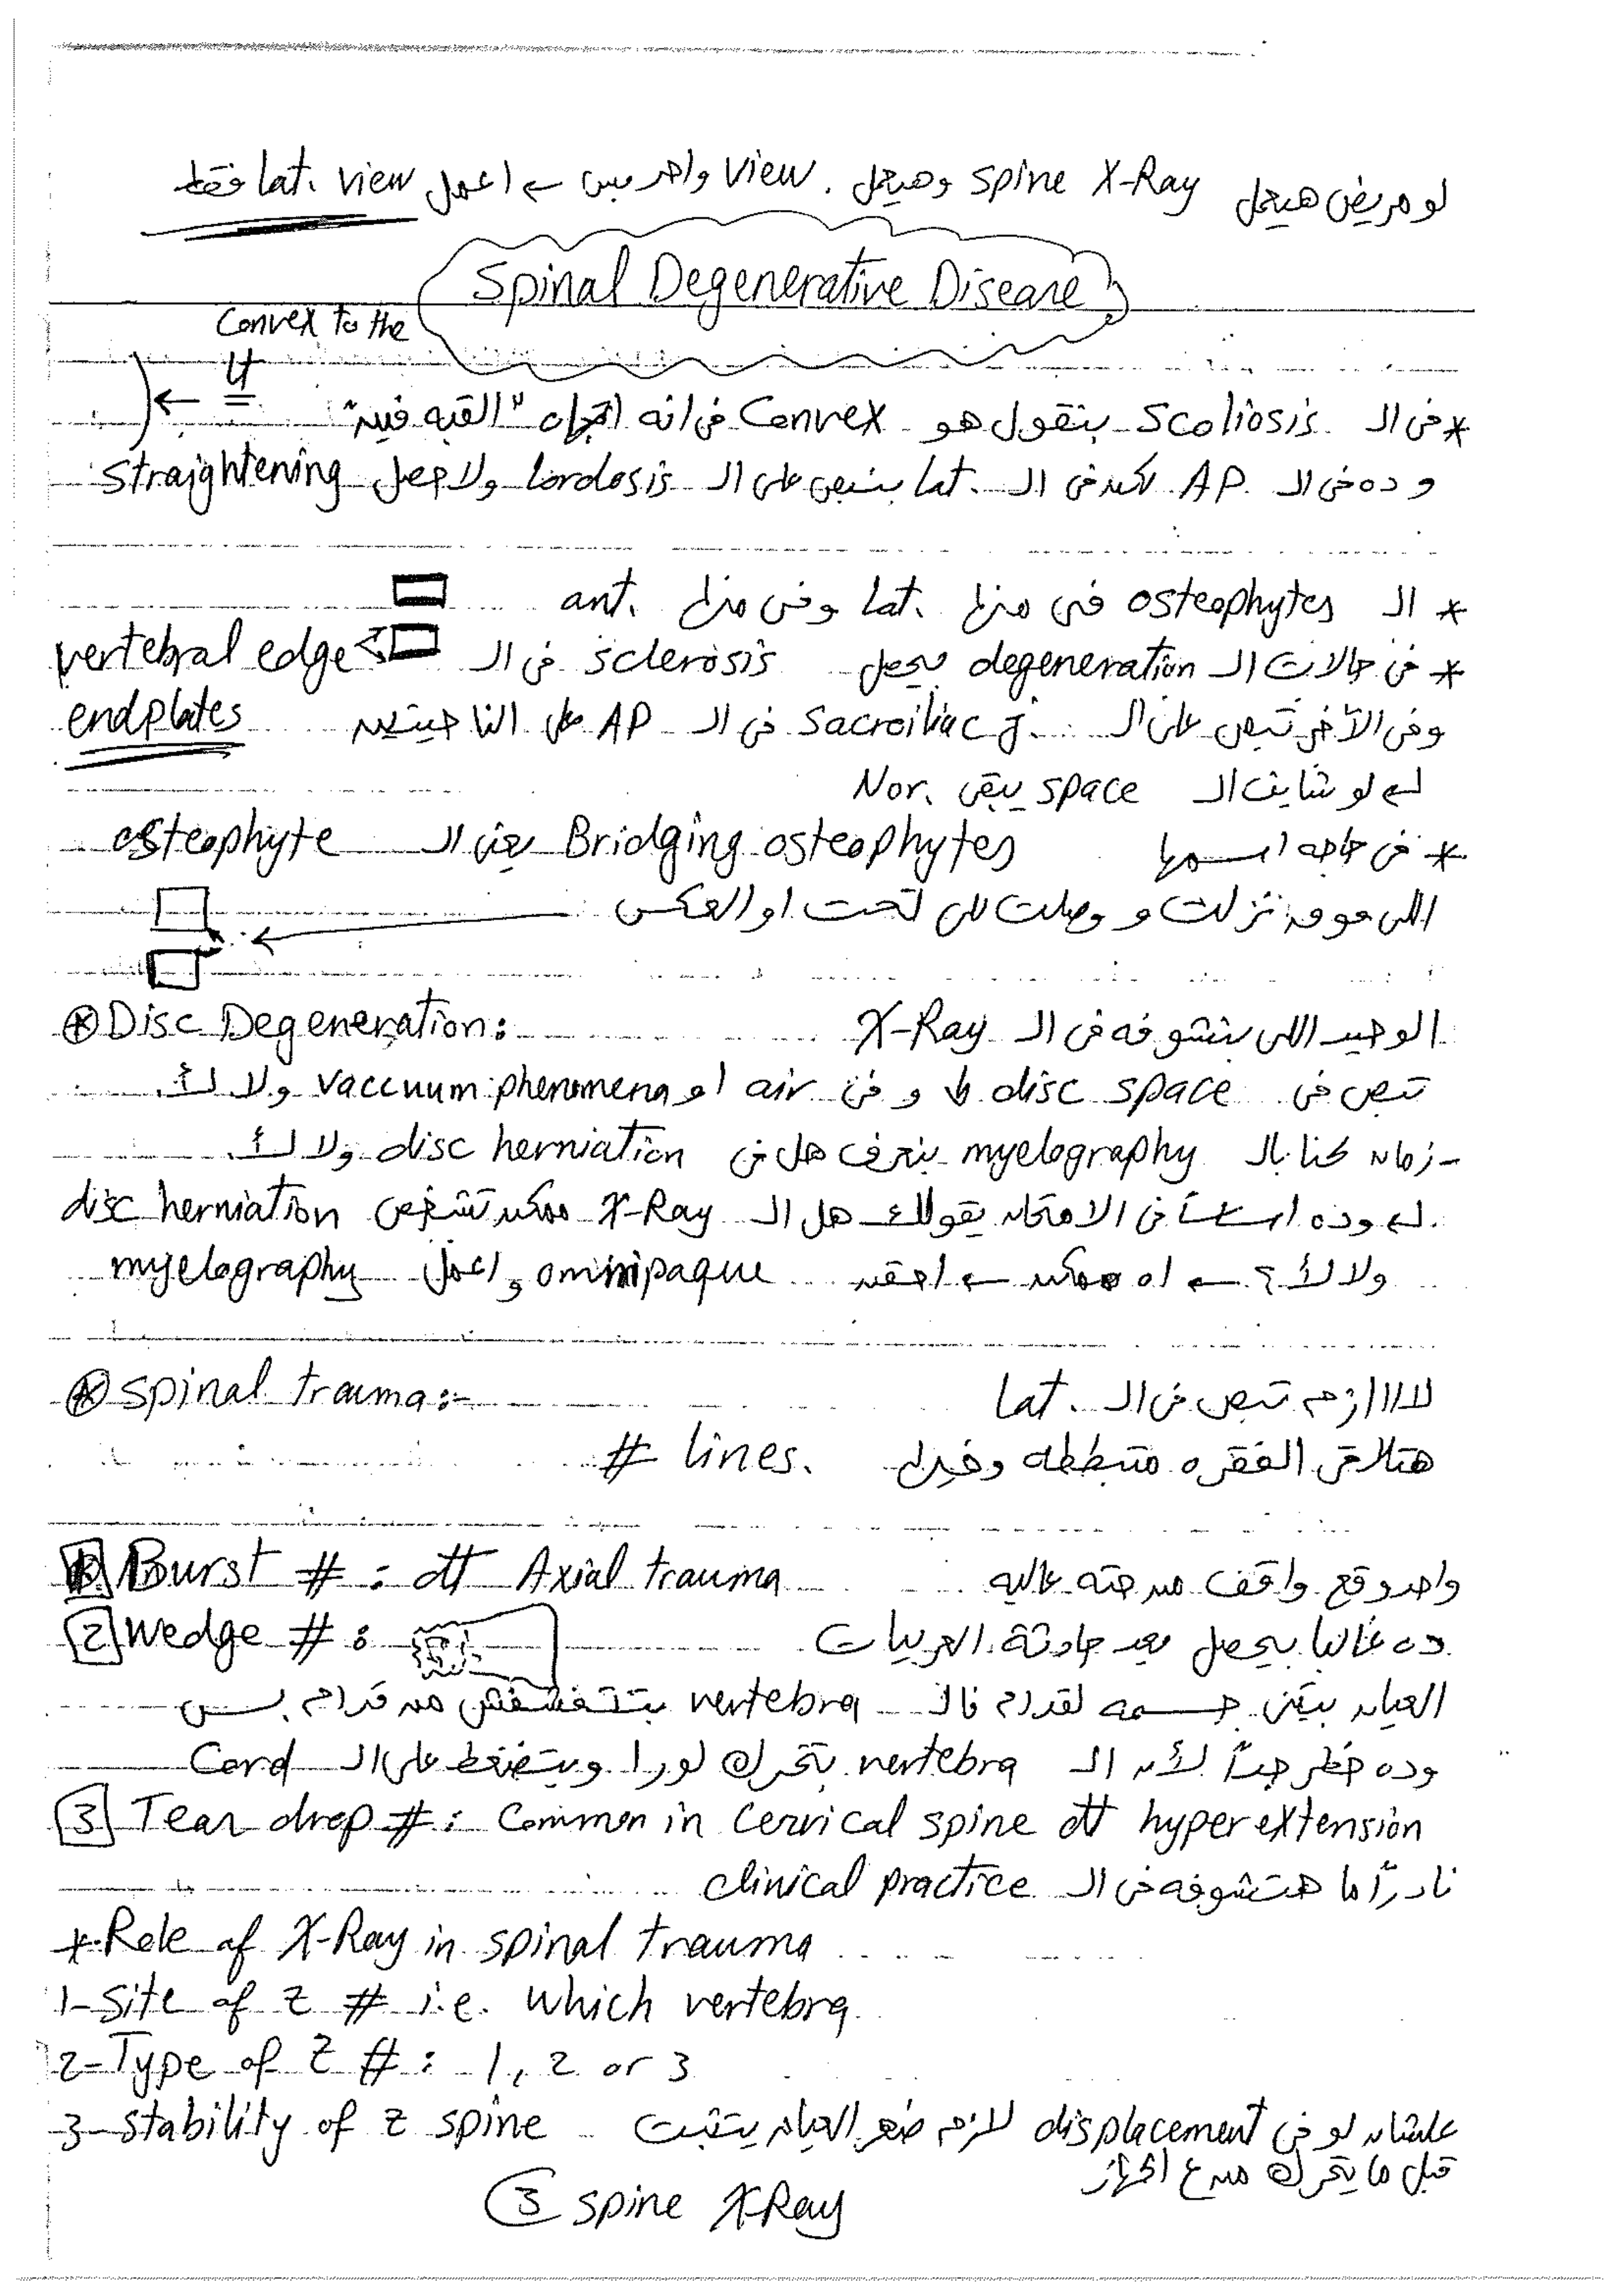 لو مريض هيعمل spine X-Ray وهيعمل view واحد بس ← اعمل lat. view فقط
Spinal Degenerative Disease
Convex to the
Lt
* فى الـ Scoliosis بنقول هو Convex فى انه اتجاه "القبه فين"
و ده فى الـ AP لكن فى الـ lat. بنبص على الـ lordosis ولا حصل straightening
* الـ osteophytes فى منها lat. وفى منها ant.
* فى حالات الـ degeneration بيحصل sclerosis فى الـ vertebral edge
endplates
وفى الآخر تبص على الـ Sacroiliac J. فى الـ AP على الناحيتين
لو شايف الـ space يبقى Nor.
* فى حاجه اسمها Bridging osteophytes يعنى الـ osteophyte
اللى فوق نزلت و وصلت للى تحت او العكس
* Disc Degeneration: الوحيد اللى بنشوفه فى الـ X-Ray
تبص فى disc space ↓ و فى air او vaccuum phenomena ولا لأ
- زمان كنا بالـ myelography بنعرف هل فى disc herniation ولا لأ
وده اساساً فى الامتحان يقولك هل الـ X-Ray ممكن تشخص disc herniation
ولا لأ؟ ← اه ممكن ← احقن omnipaque و اعمل myelography
* spinal trauma:- لااازم تبص فى الـ lat.
هتلاقى الفقره متبططه وفيها # lines.
1 Burst # : dt Axial trauma واحد وقع واقف من حته عاليه
2 Wedge # : ده غالبا بيحصل بعد حادثة العربيات
العيان بيتنى جسمه لقدام فالـ vertebra بتتفشفش من قدام بس
وده خطر جداً لأن الـ vertebra بتتحرك لورا وبتضغط على الـ Cord
3 Tear drop # : Common in Cervical spine dt hyperextension
نادراً ما هتشوفه فى الـ clinical practice
* Role of X-Ray in spinal trauma
1- Site of z # i.e. which vertebra
2- Type of z # : 1, 2 or 3
3- stability of z spine علشان لو فى displacement لازم ضهر العيان يتثبت
قبل ما يتحرك من ع الجهاز
3 spine X-Ray